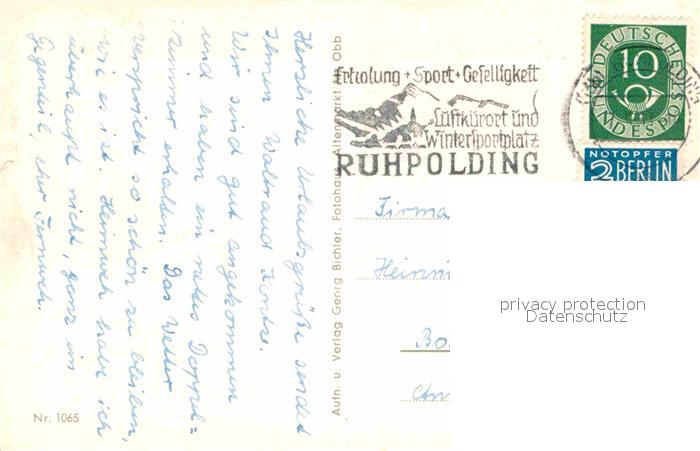 Herzliche Urlaubsgrüße sendet
Ihnen Waltraud
Wir sind gut angekommen
und haben ein nettes Doppel=
zimmer erhalten. Das Wetter
verspricht so schön zu bleiben,
wie es ist. Heimweh habe ich
überhaupt nicht, ganz im
Gegenteil, eher Fernweh.
Nr. 1065
Aufn. u. Verlag Georg Bichler, Fotohaus, Altenmarkt Obb
Erholung + Sport + Geselligkeit
Luftkurort und
Wintersportplatz
RUHPOLDING
DEUTSCHE
10
BUNDESPOST
NOTOPFER
2 BERLIN
Firma
Heinri
Bo
An
privacy protection
Datenschutz